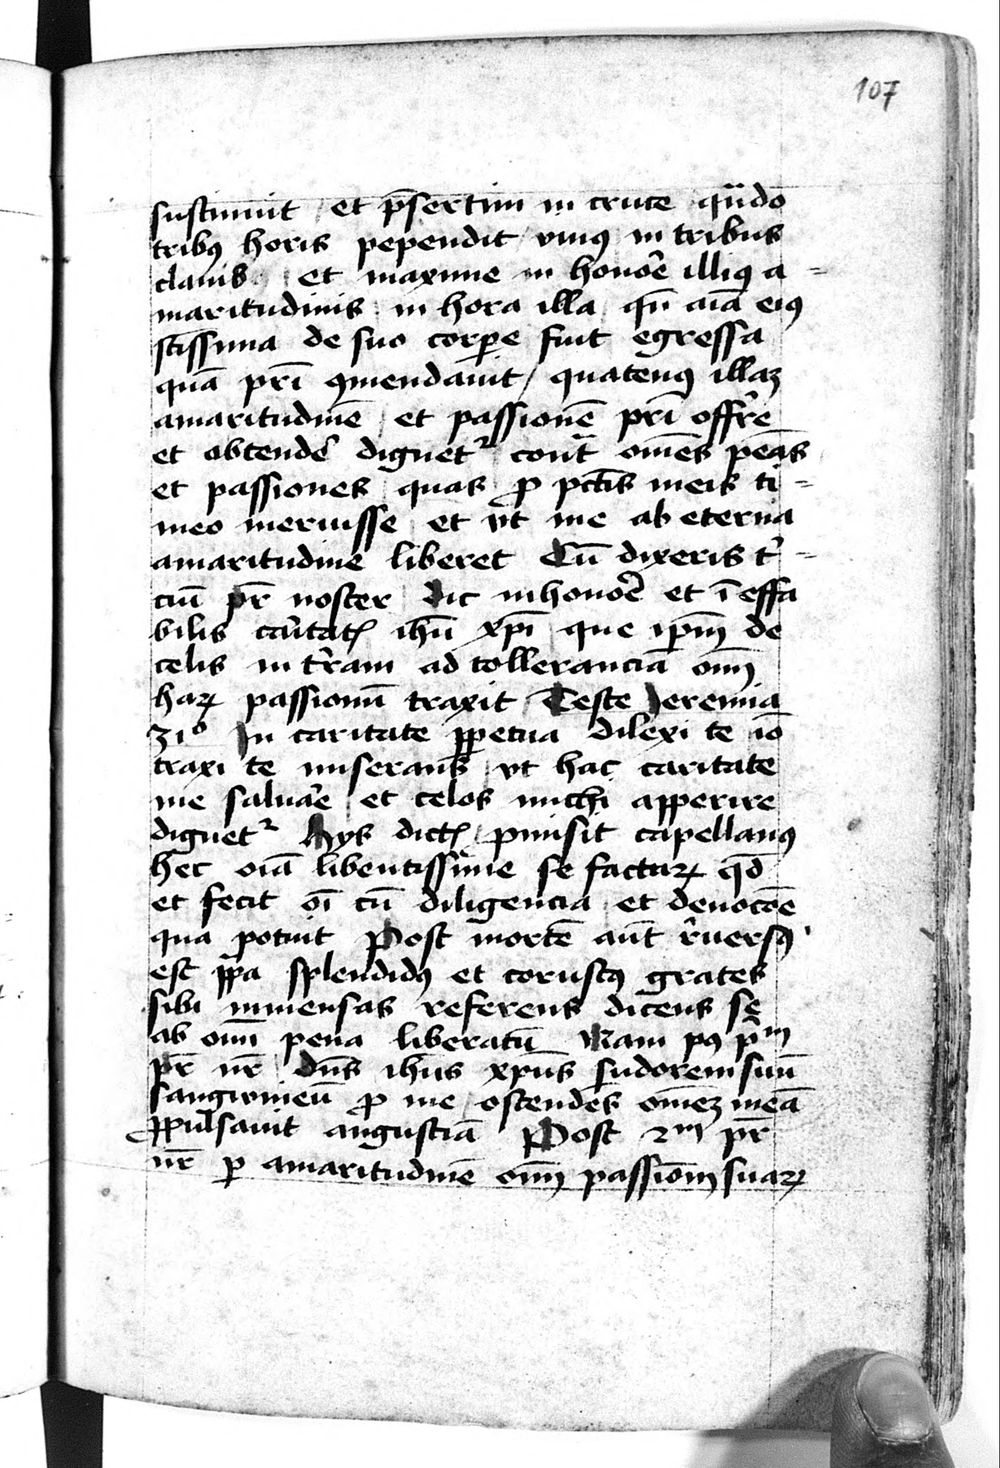 107
sustinuit et p̄sertim in cruce qn̄do
tribꝰ horis pependit viuꝰ in tribus
clauis et maxime in honor̄e illiꝰ a=
maritudinis in hora illa qn̄ aīa eiꝰ
sc̄issima de suo corpore fuit egressa
quā pr̄i ꝯmendauit / quatenꝰ illaꝫ
amaritudinē et passionē pr̄i offr̄e
et obtendē dignetᷣ contᷓ om̄es penas
et passiones quas ꝓ pctīs meis ti=
meo meruisse et vt me ab eterna
amaritudine liberet Cū dixeris t̄=
ciū pr̄ noster dic in honor̄e et īeffa
bilis caritatꝭ ihū xp̄i que ip̄m de
celis in tr̄am ad tolleranciā om̄
harꝝ passionū traxit Teste Jeremia
31º In caritate ꝑpetua dilexi te iō
traxi te miserans vt hac caritate
me saluar̄e et celos michi apperire
dignetᷣ Hys dictꝭ ꝓmisit capellanꝰ
hec oīa libentissime se facturꝝ qd̄
et fecit oī cū diligencia et deuocōe
qua potuit Post mortē aūt r̄uersꝰ
est pp̄a splendidꝰ et coruscꝰ grates
sibi immensas referens dicens se
ab om̄i pena liberatū Nam pꝰ pᷓᵐ
pr̄ nr̄ dn̄s ihūs xp̄us sudorem suū
sangwineū ꝓ me ostendēs om̄eꝫ meā
ꝓpulsauit angustiā Post 2ᵐ pr̄
nr̄ ꝑ amaritudinē om̄ passionū suarꝝ